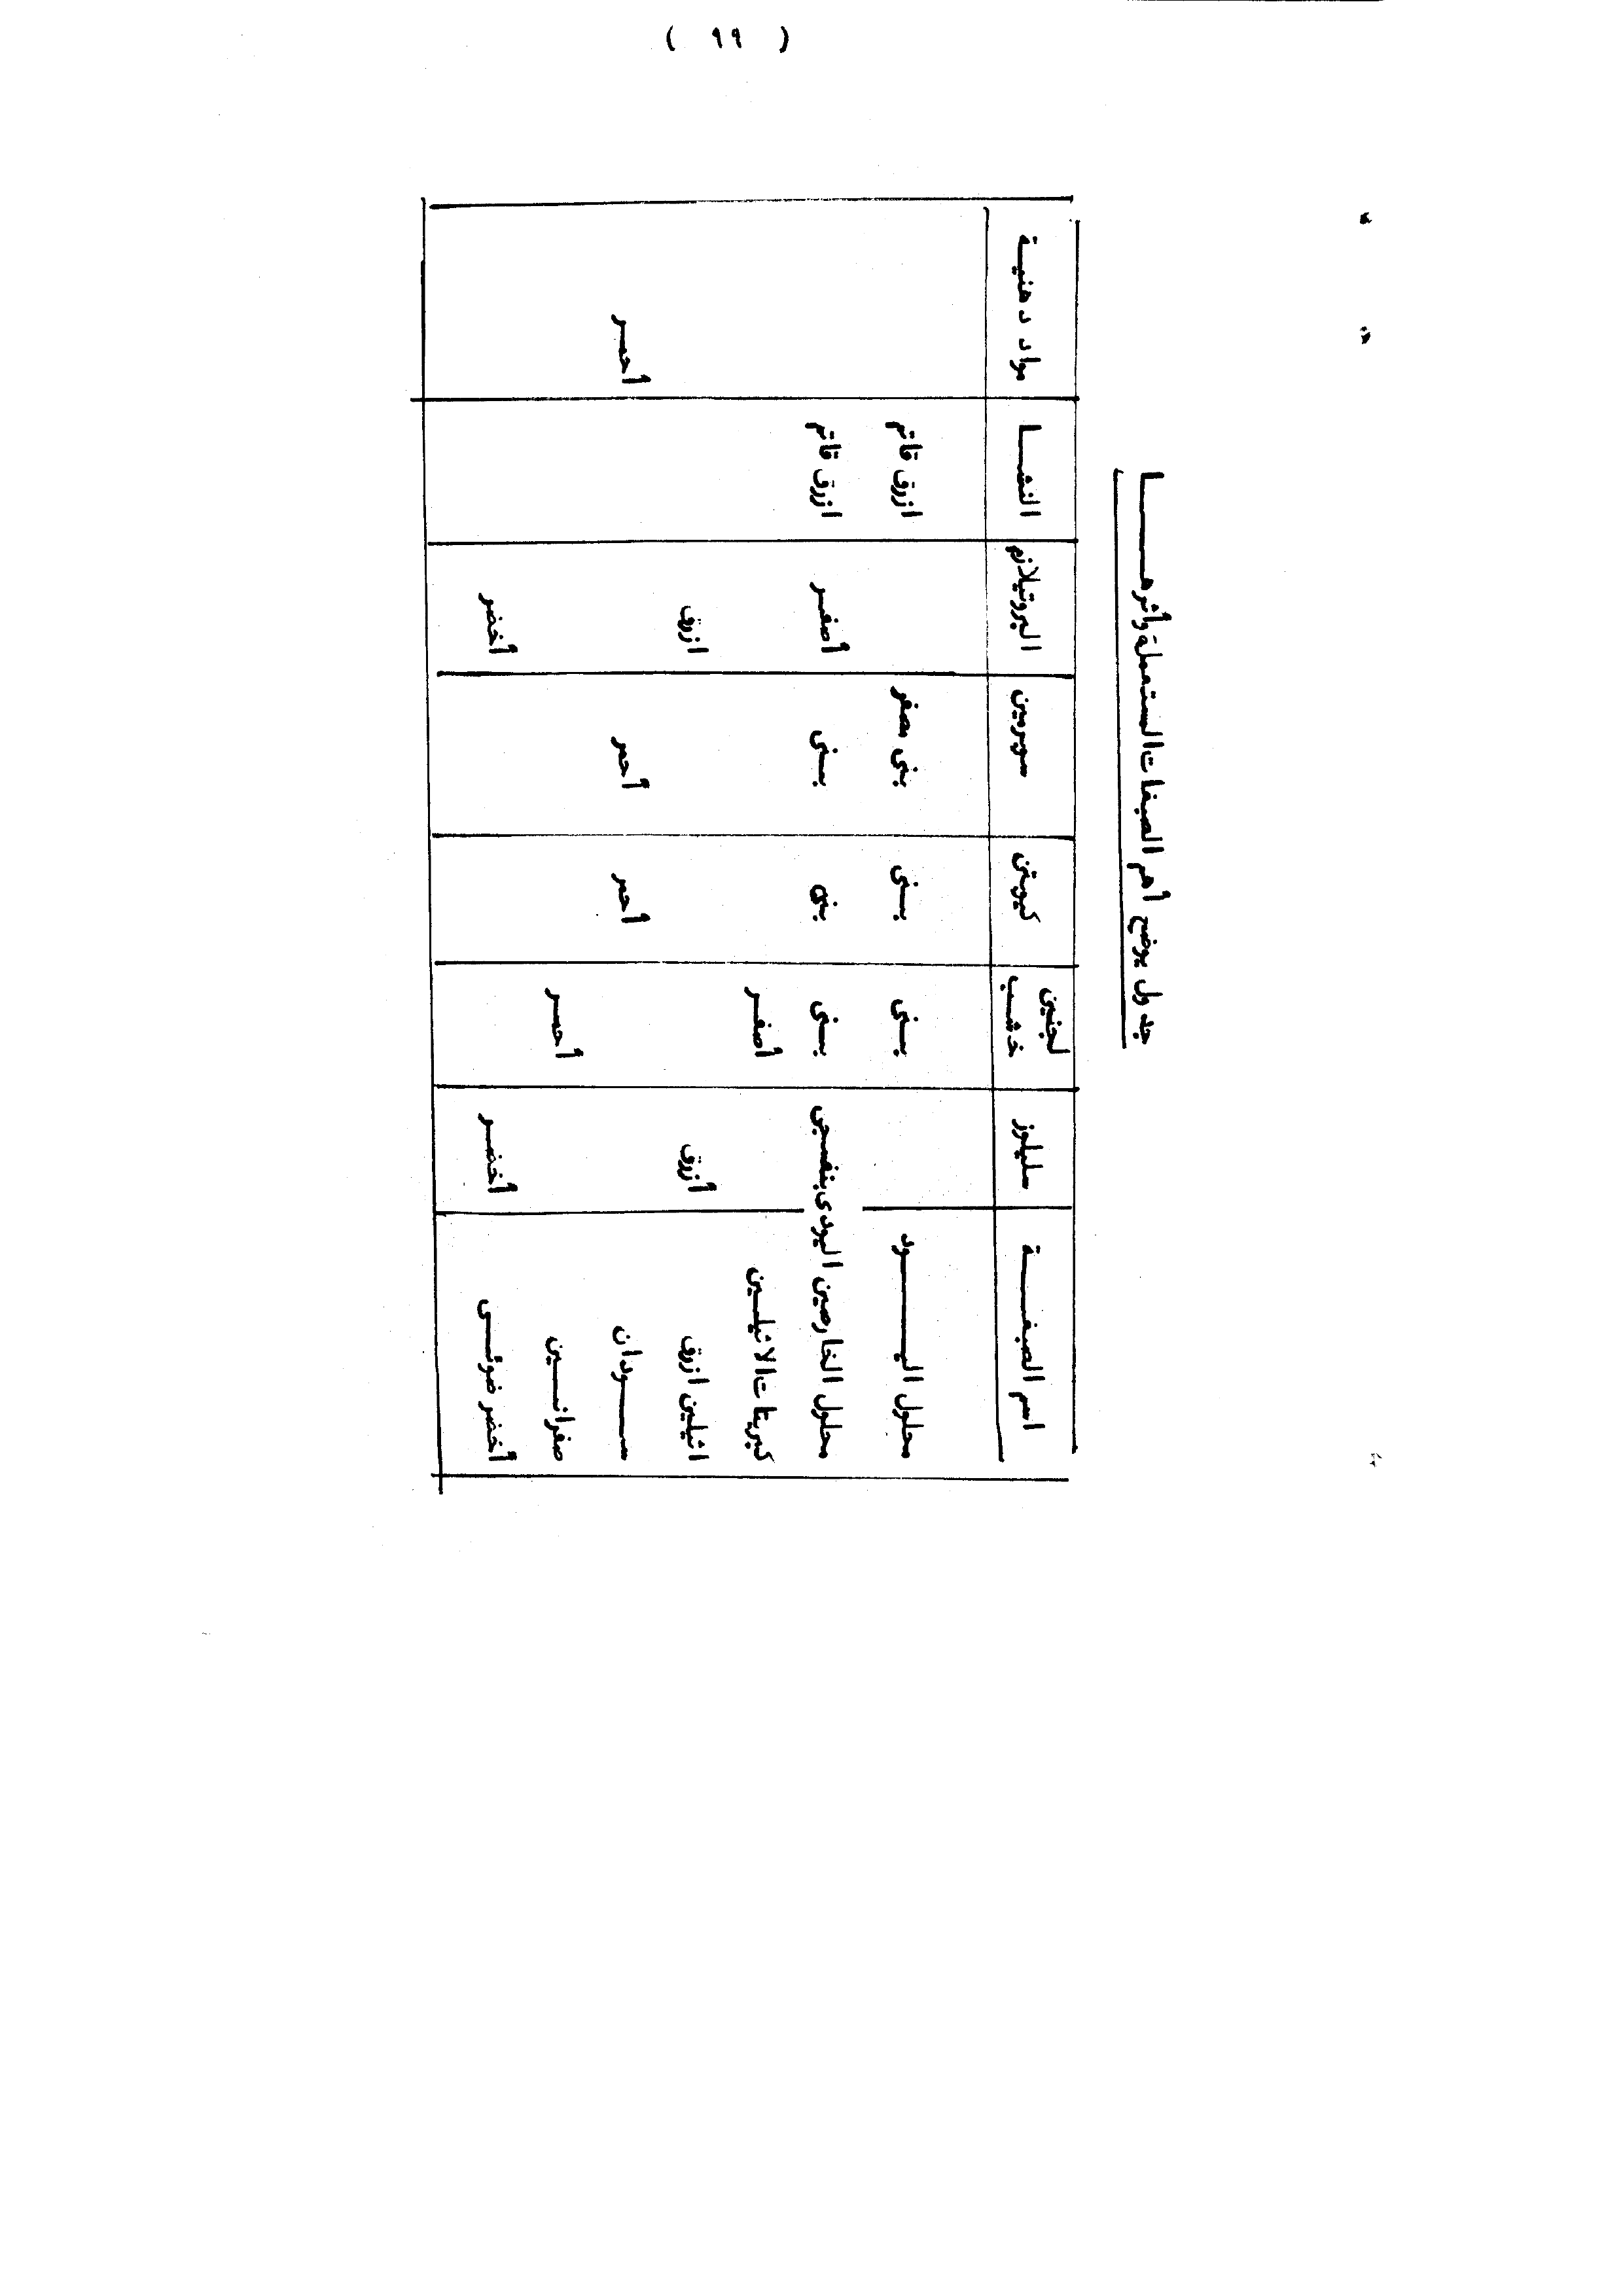 ( ٩٩ )
جدول يوضح أهم الصبغات المستعملة وأثرها
اسم الصبغة سليلوز لجنين خشب كيوتن سوبرين البروتبلازم النشا مواد دهنية
محلول اليود بنى بنى بنى مصفر ازرق قاتم
محلول الخارصين اليودى بنفسجى بنى بنى بنى أصفر ازرق قاتم
كبريتات الانيلين أصفر
انيلين ازرق أزرق ازرق
سودان أحمر أحمر أحمر
صفرانين أحمر
أخضر ضوئى أخضر أخضر